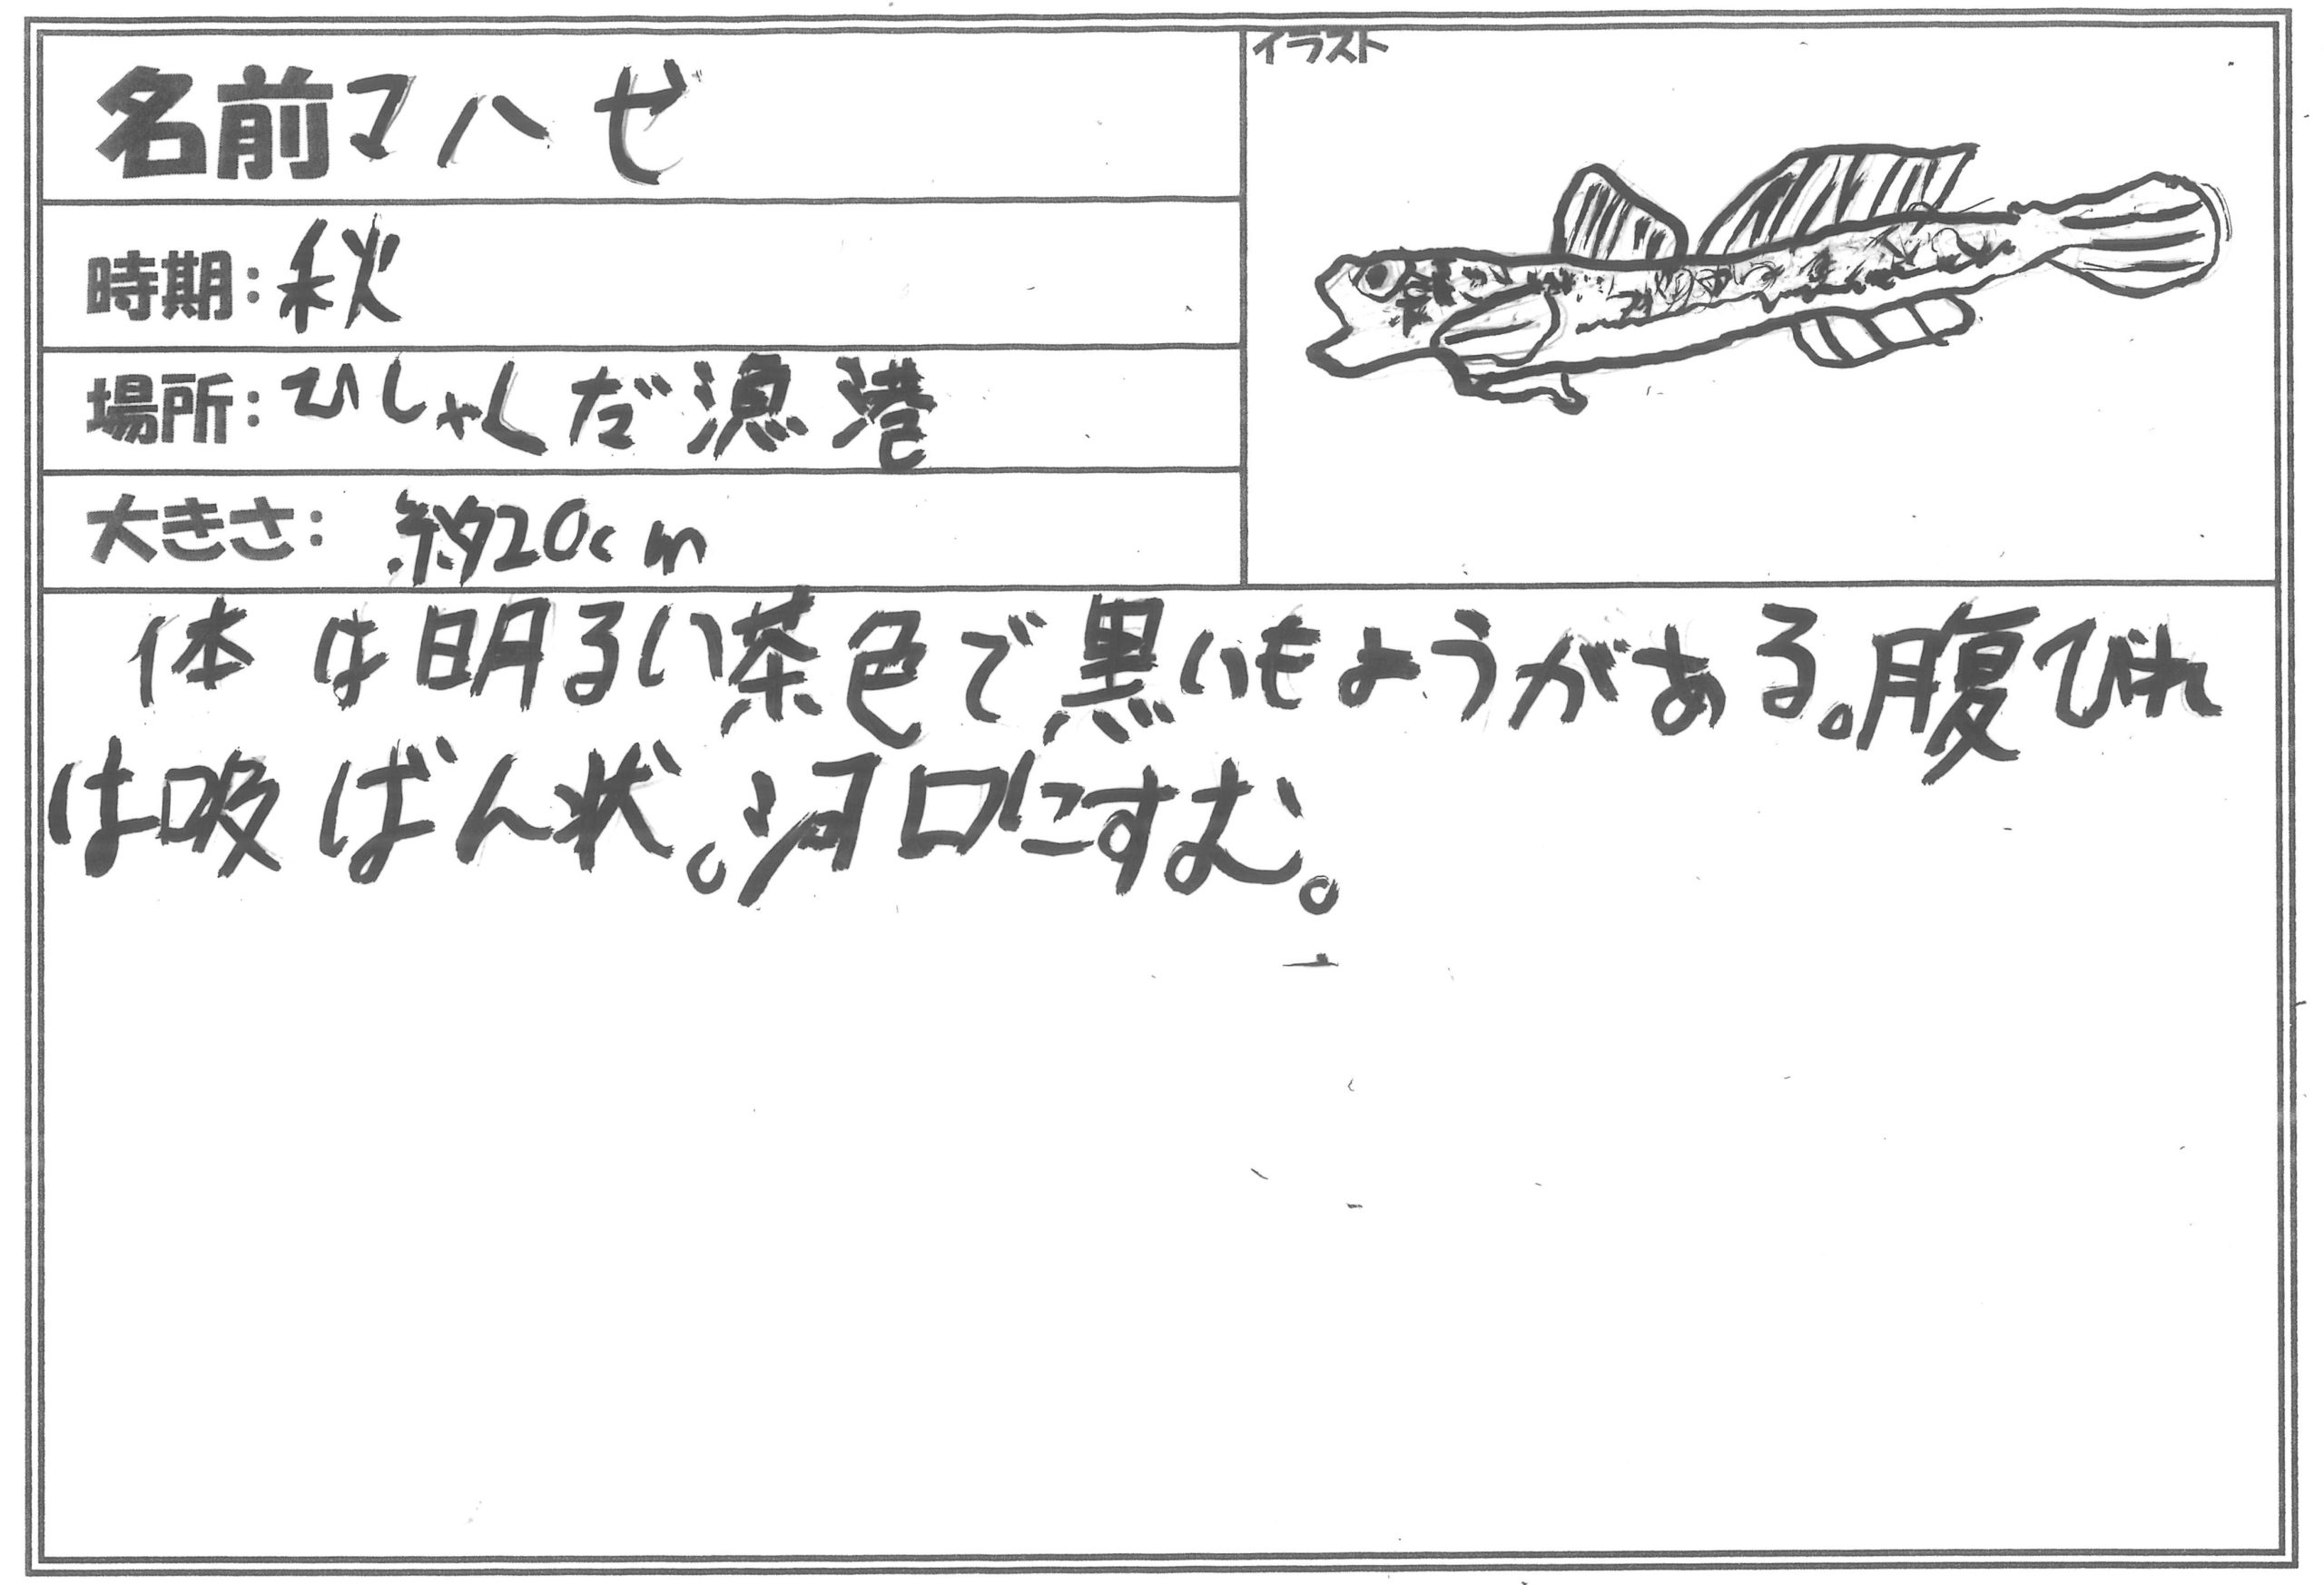 名前マハゼ
イラスト
時期：秋
場所：ひしゃくだ漁港
大きさ：約20cm
体は明るい茶色で黒いもようがある。腹びれ
は吸ばん状。河口にすむ。